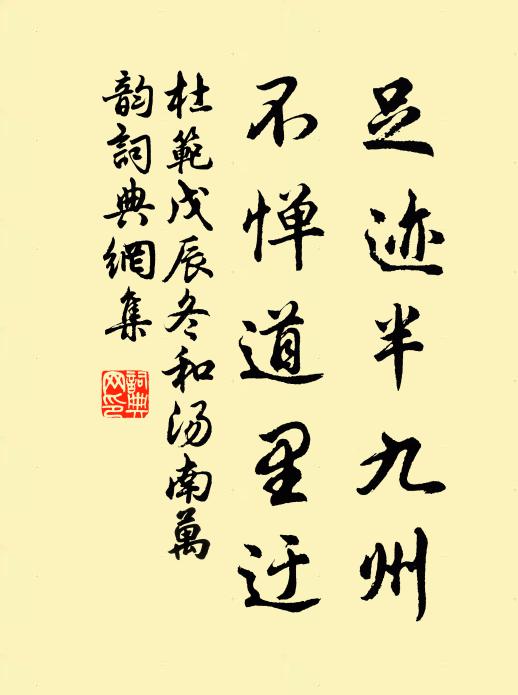 足迹半九州
不惮道里迂
杜範戊辰冬和汤南萬
韵詞典網集
詞典
网印